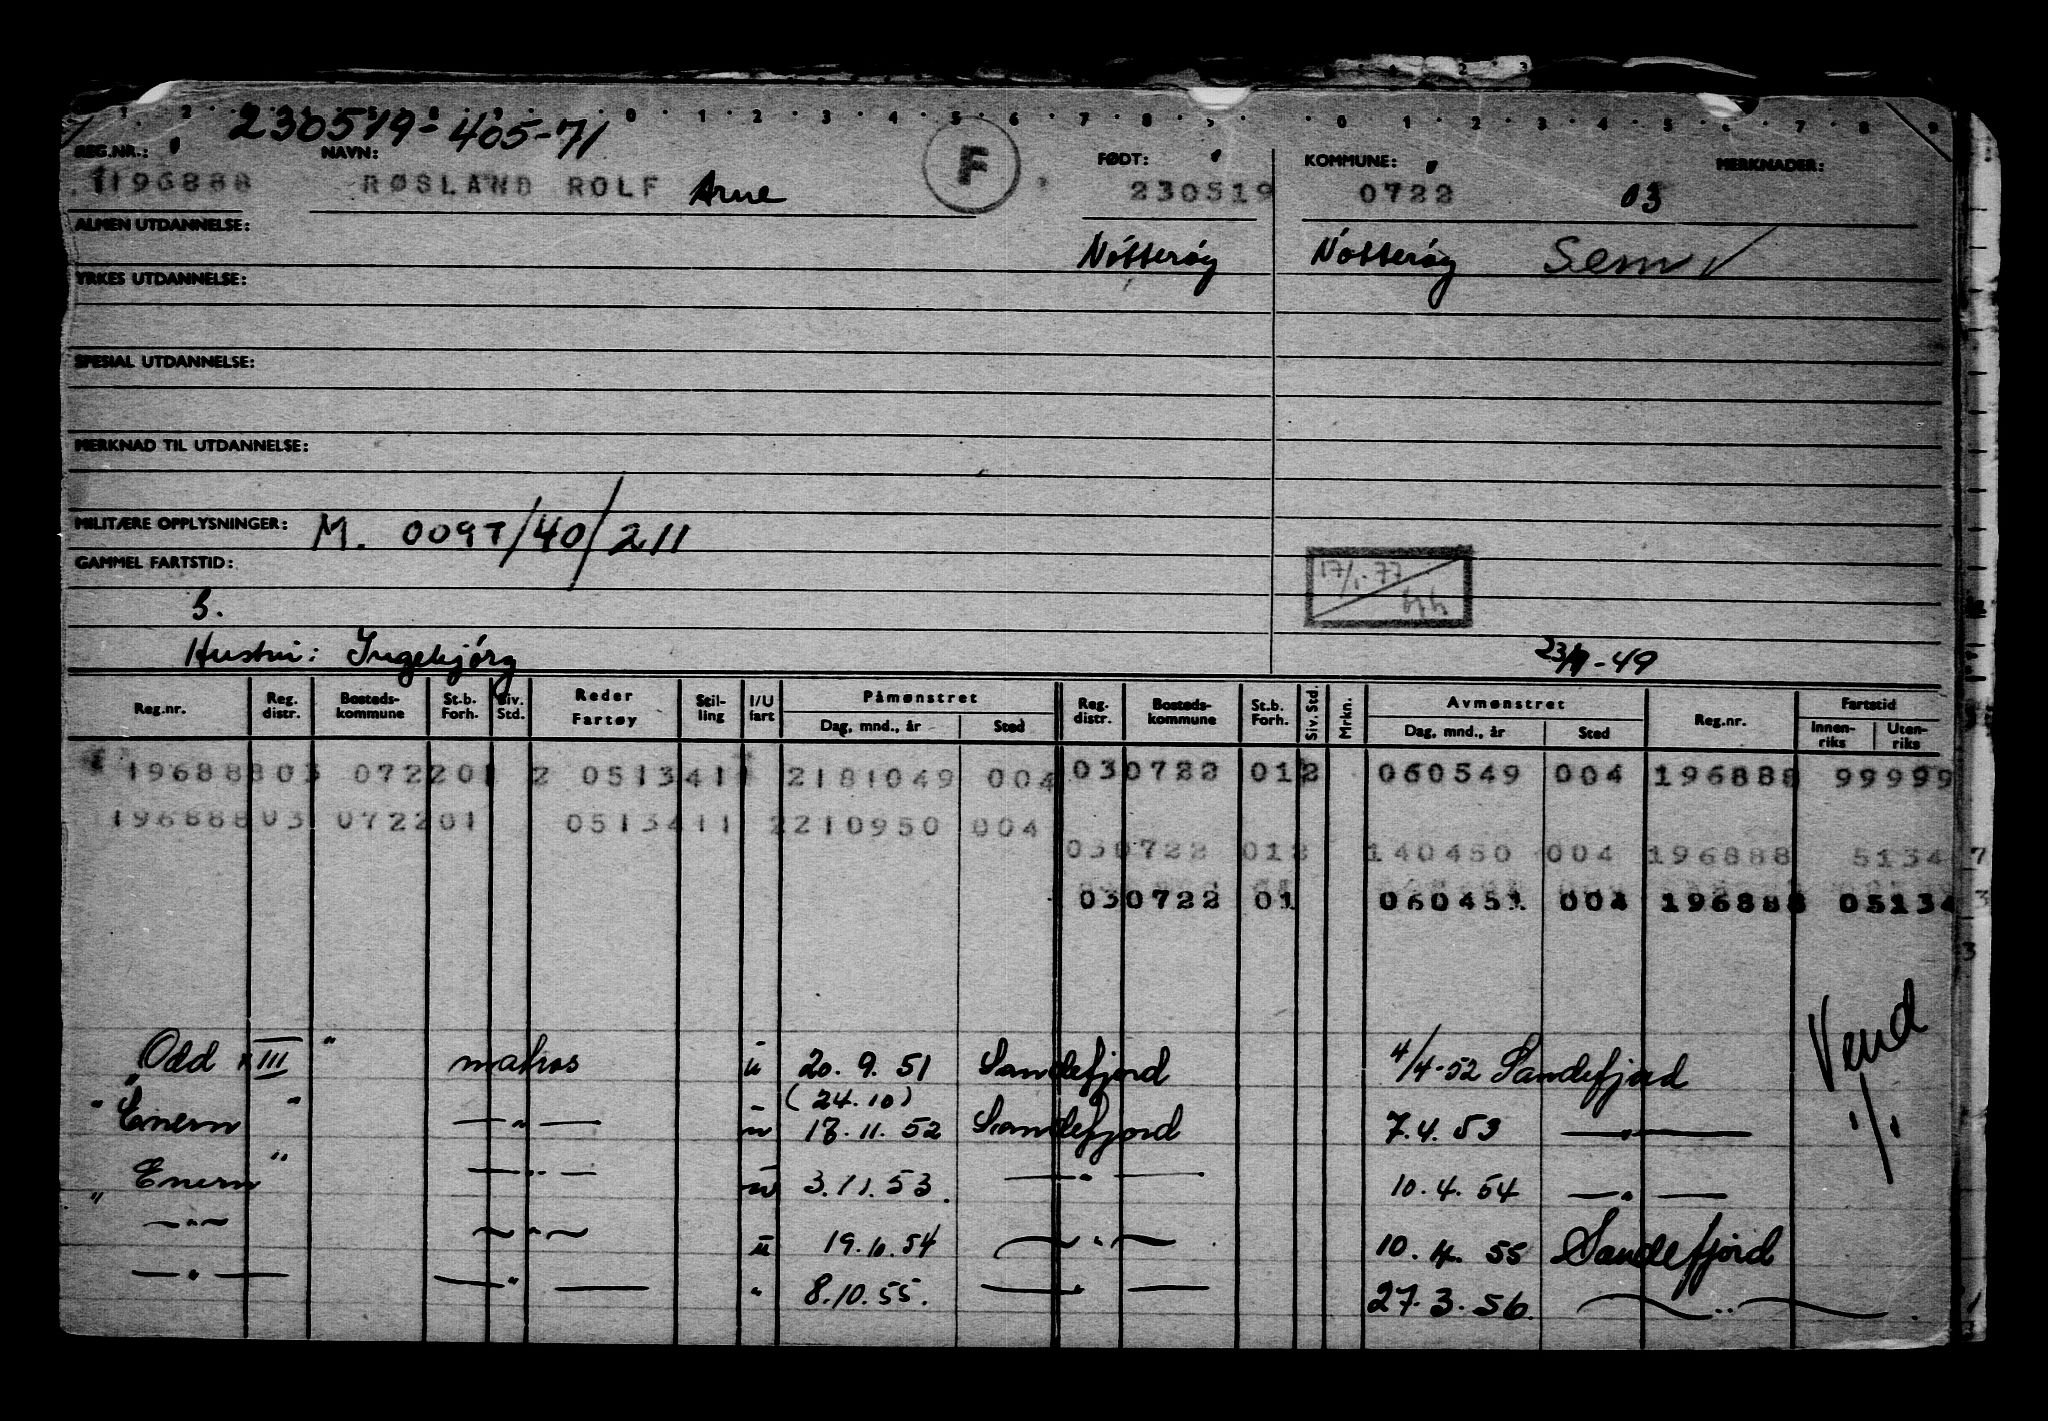 230519-405-71
REG.NR.: NAVN: FØDT: KOMMUNE: MERKNADER:
196888 RØSLAND ROLF Arne F 230519 0722 03
ALMEN UTDANNELSE: Nötteröy Nötteröy Sem
YRKES UTDANNELSE:
SPESIAL UTDANNELSE:
MERKNAD TIL UTDANNELSE:
MILITÆRE OPPLYSNINGER: M. 0097/40/211
GAMMEL FARTSTID: 17/1-77
S.
Hustru: Ingebjörg -49
Reg.nr. Reg. distr. Bosteds-kommune St.b. Forh. Siv. Std. Reder Fartøy Stil-ling I/U fart Påmønstret Dag, mnd., år Sted Reg. distr. Bosteds-kommune St.b. Forh. Siv. Std. Mrkn. Avmønstret Dag, mnd., år Sted Reg.nr. Fartstid Innen-riks Uten-riks
196888 03 0722 01 2 0513411 2181049 004 03 0722 01 2 060549 004 196888 99999
196888 03 0722 01 0513411 2210950 004
03 0722 01 2 140450 004 196888 5134 7
03 0722 01 060451 004 196888 05134 3
Vend
"Odd III" matros u 20. 9. 51 Sandefjord 4/4-52 Sandefjord
(24.10)
"Enern" —"— u 18. 11. 52 Sandefjord 7.4.53 —"—
"Enern" —"— u 3.11.53. —"— 10.4.54 —"—
—"— —"— u 19.10.54 —"— 10.4.55 Sandefjord
—"— —"— " 8.10.55. —"— 27.3.56. —"—